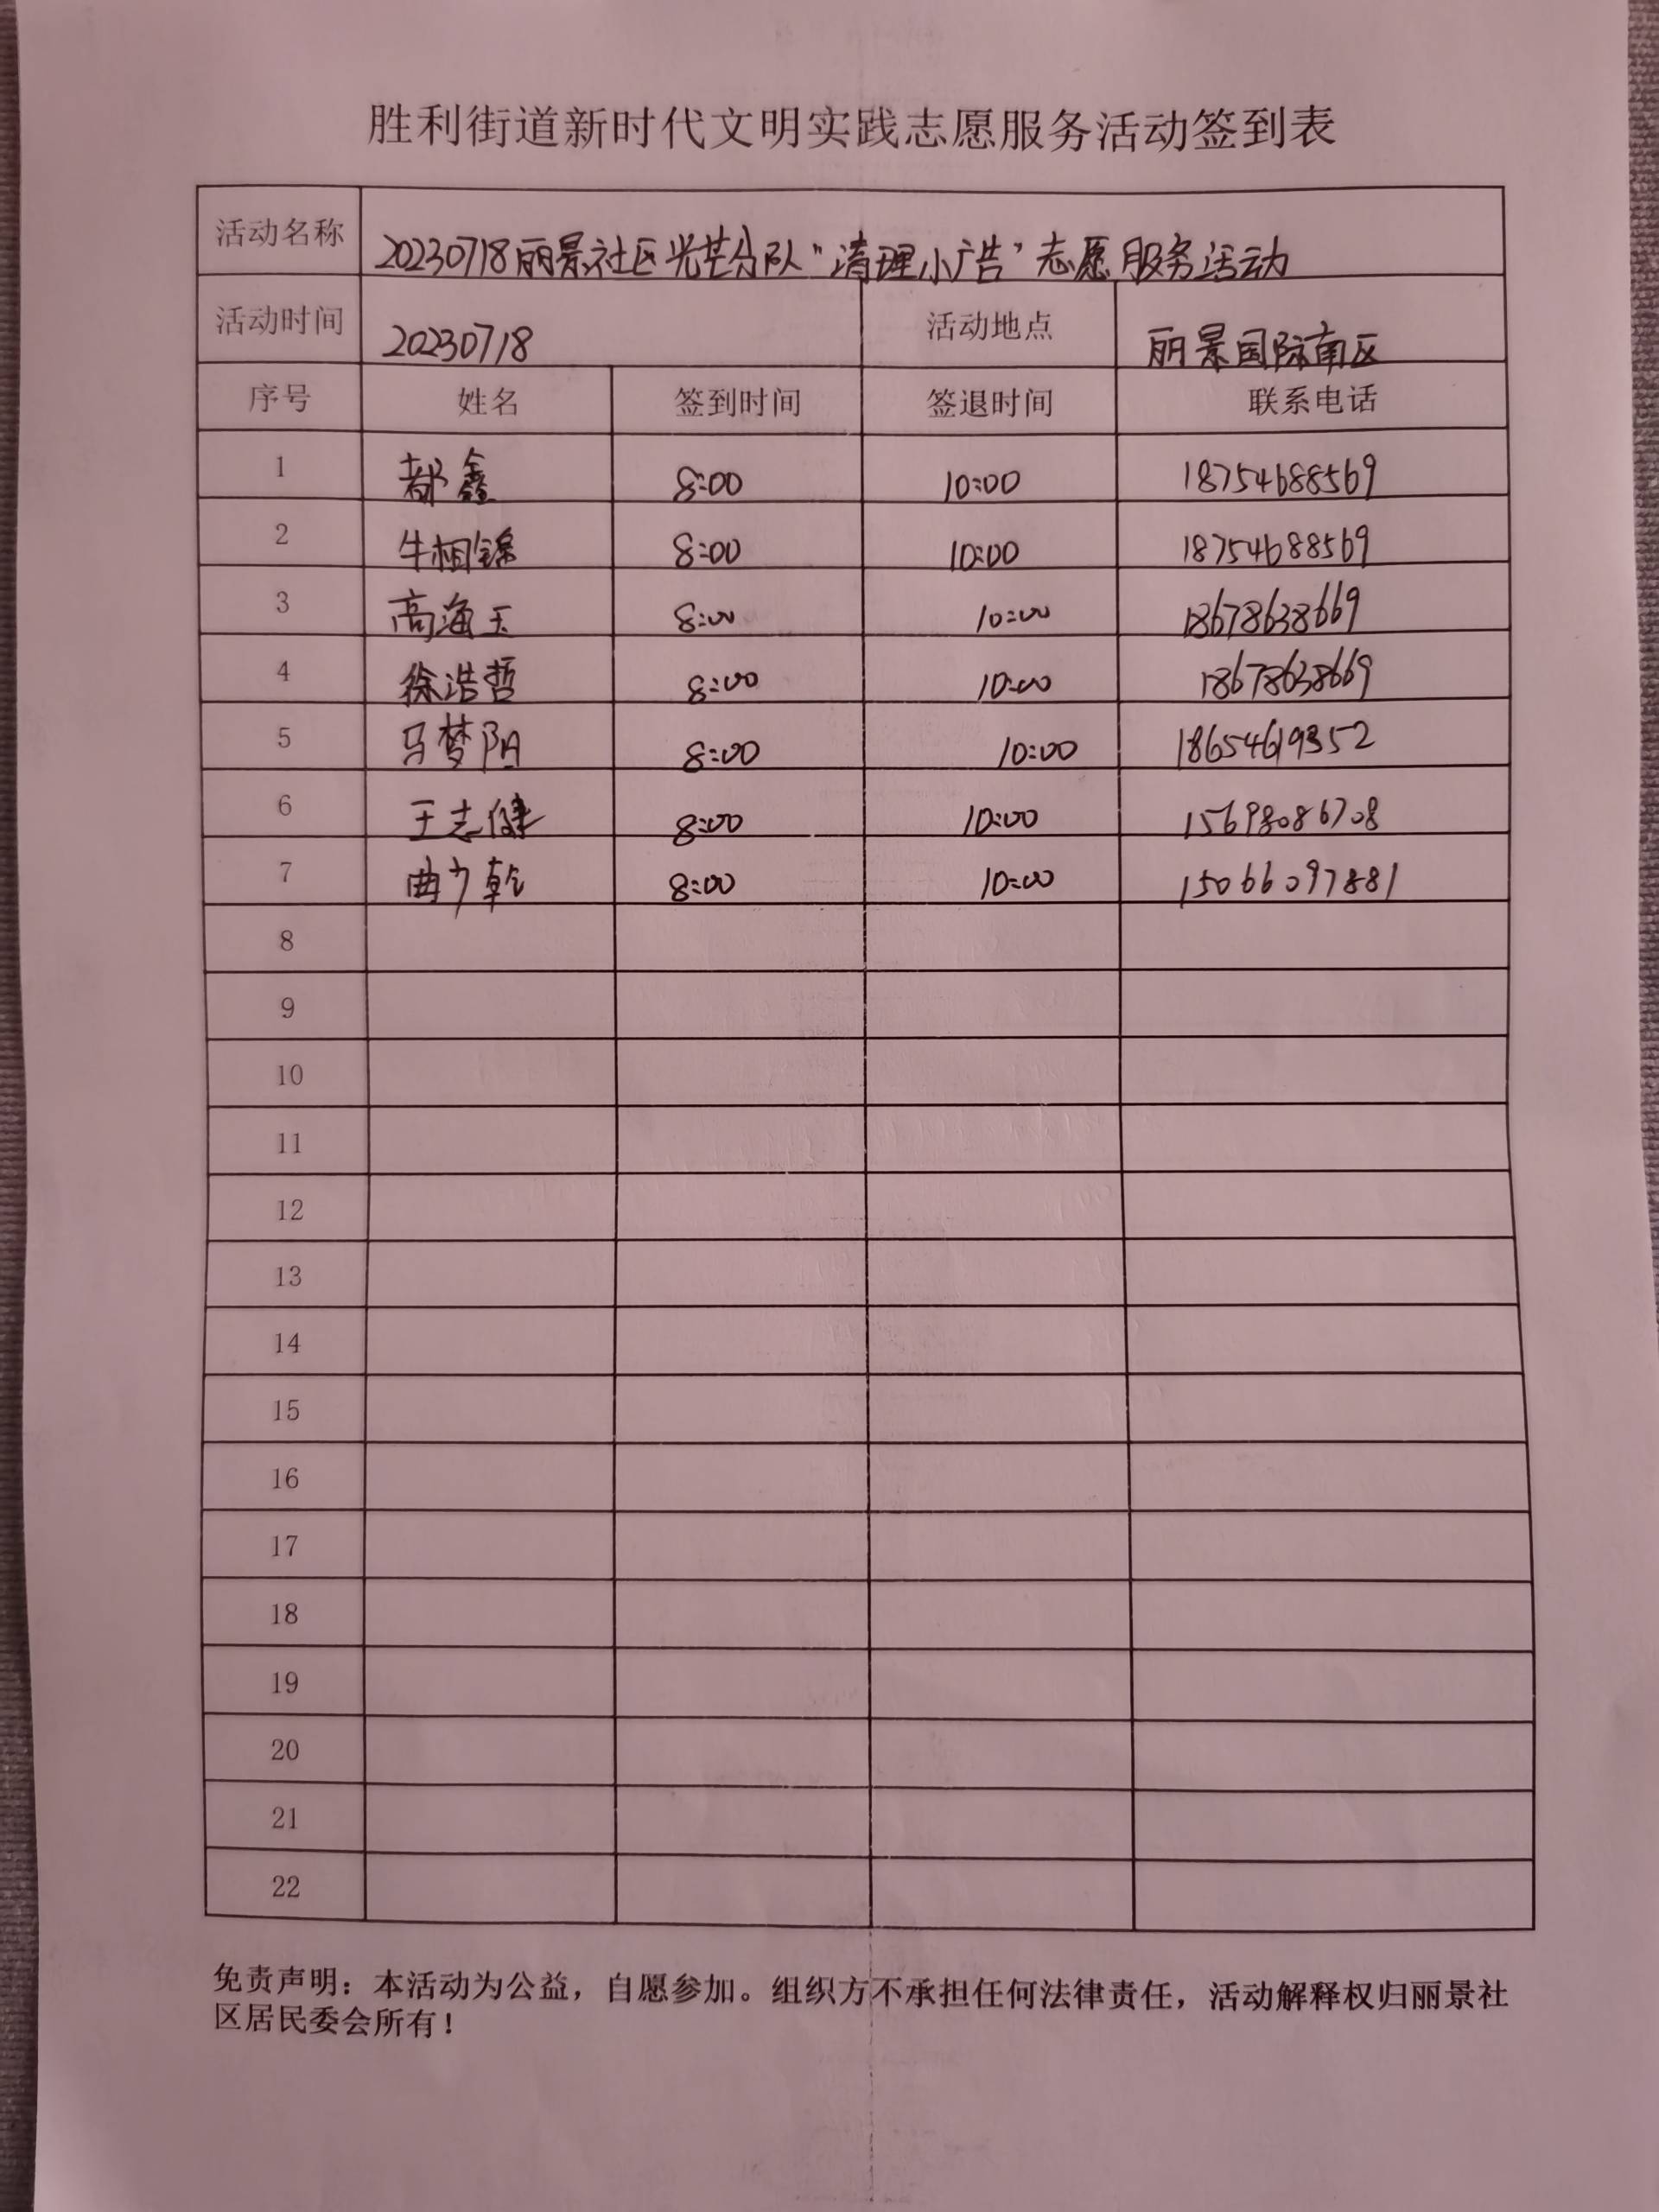 胜利街道新时代文明实践志愿服务活动签到表
活动名称 20230718丽景社区光芒分队“清理小广告”志愿服务活动
活动时间 20230718 活动地点 丽景国际南区
序号 姓名 签到时间 签退时间 联系电话
1 都鑫 8:00 10:00 18754688569
2 牛相锦 8:00 10:00 18754688569
3 高海玉 8:00 10:00 18678638669
4 徐浩哲 8:00 10:00 18678638669
5 马梦阳 8:00 10:00 18654619352
6 王志健 8:00 10:00 15698086708
7 曲少乾 8:00 10:00 15066097881
8
9
10
11
12
13
14
15
16
17
18
19
20
21
22
免责声明：本活动为公益，自愿参加。组织方不承担任何法律责任，活动解释权归丽景社
区居民委会所有！